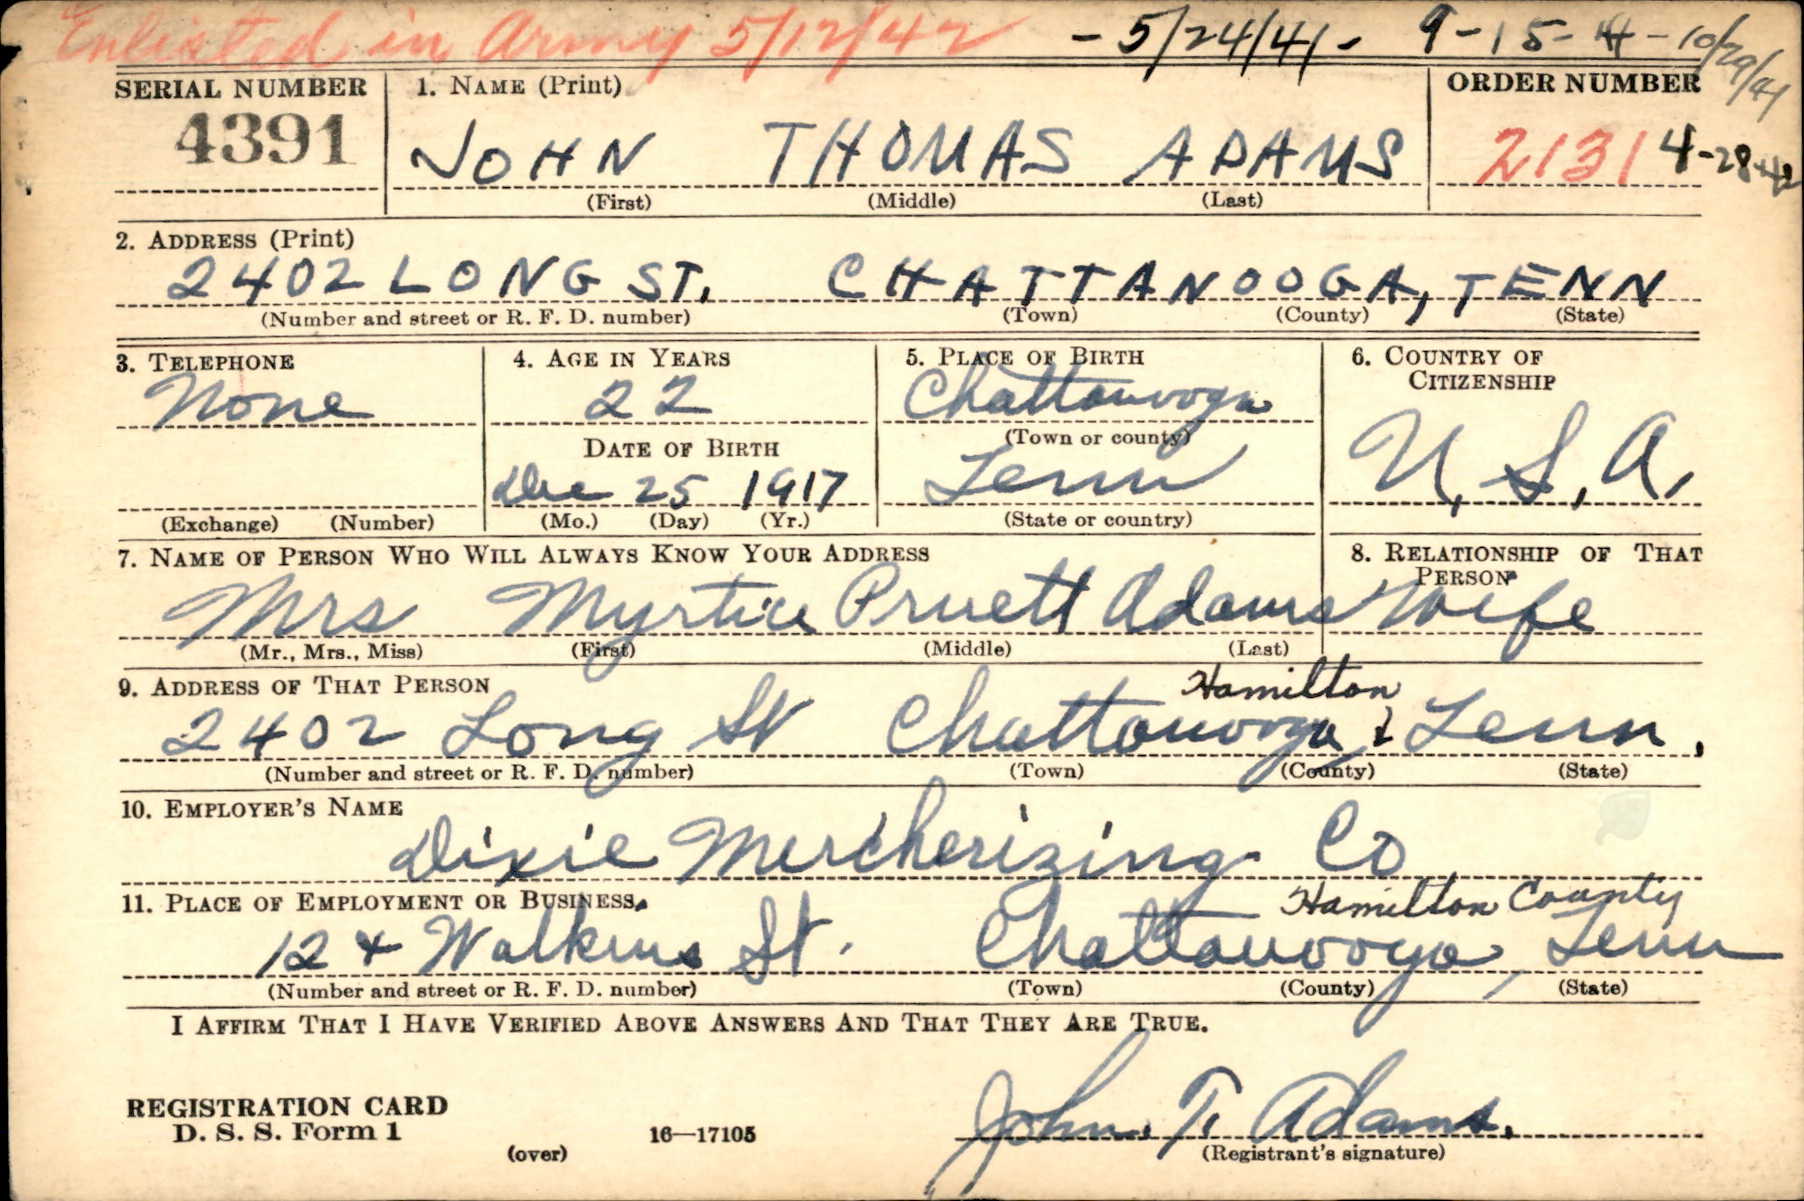 Enlisted in Army 5/12/42 - 5/24/41 - 9-15-41 - 10/29/41
SERIAL NUMBER 1. NAME (Print) ORDER NUMBER
4391 JOHN THOMAS ADAMS 2131 4-28-42
(First) (Middle) (Last)
2. ADDRESS (Print)
2402 LONG ST. CHATTANOOGA, TENN
(Number and street or R. F. D. number) (Town) (County) (State)
3. TELEPHONE 4. AGE IN YEARS 5. PLACE OF BIRTH 6. COUNTRY OF
CITIZENSHIP
None 22 Chattanooga
DATE OF BIRTH (Town or county)
Dec 25 1917 Tenn U.S.A.
(Exchange) (Number) (Mo.) (Day) (Yr.) (State or country)
7. NAME OF PERSON WHO WILL ALWAYS KNOW YOUR ADDRESS 8. RELATIONSHIP OF THAT
PERSON
Mrs Myrtice Pruett Adams Wife
(Mr., Mrs., Miss) (First) (Middle) (Last)
9. ADDRESS OF THAT PERSON Hamilton
2402 Long St Chattanooga Tenn.
(Number and street or R. F. D. number) (Town) (County) (State)
10. EMPLOYER'S NAME
Dixie Mercherizing Co
11. PLACE OF EMPLOYMENT OR BUSINESS. Hamilton County
12 + Watkins St. Chattanooga, Tenn
(Number and street or R. F. D. number) (Town) (County) (State)
I AFFIRM THAT I HAVE VERIFIED ABOVE ANSWERS AND THAT THEY ARE TRUE.
REGISTRATION CARD
D. S. S. Form 1 16—17105 John. T. Adams.
(over) (Registrant's signature)